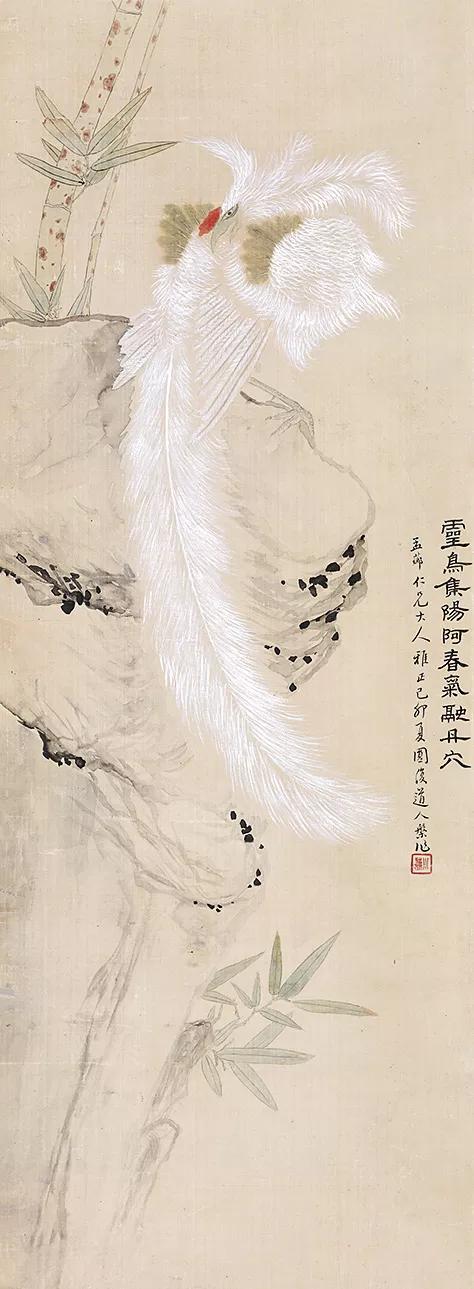 靈鳥集陽阿春氣融丹穴
孟仁兄大人雅正己卯夏道人作